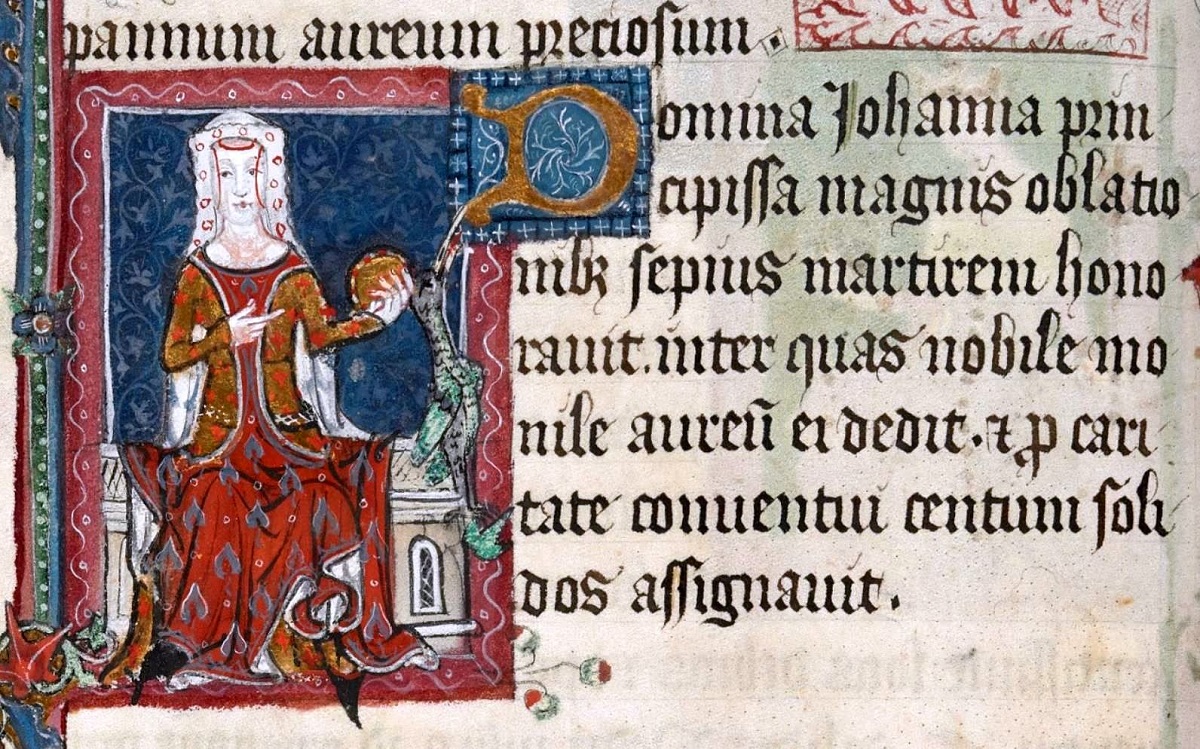 pannum aureum preciosum
Domina Johanna prin
cipissa magnis oblatio
nibꝫ sepius martirem hono
rauit. inter quas nobile mo
nile aureū ei dedit. ⁊ ꝓ cari
tate conuentui centum soli
dos assignauit.